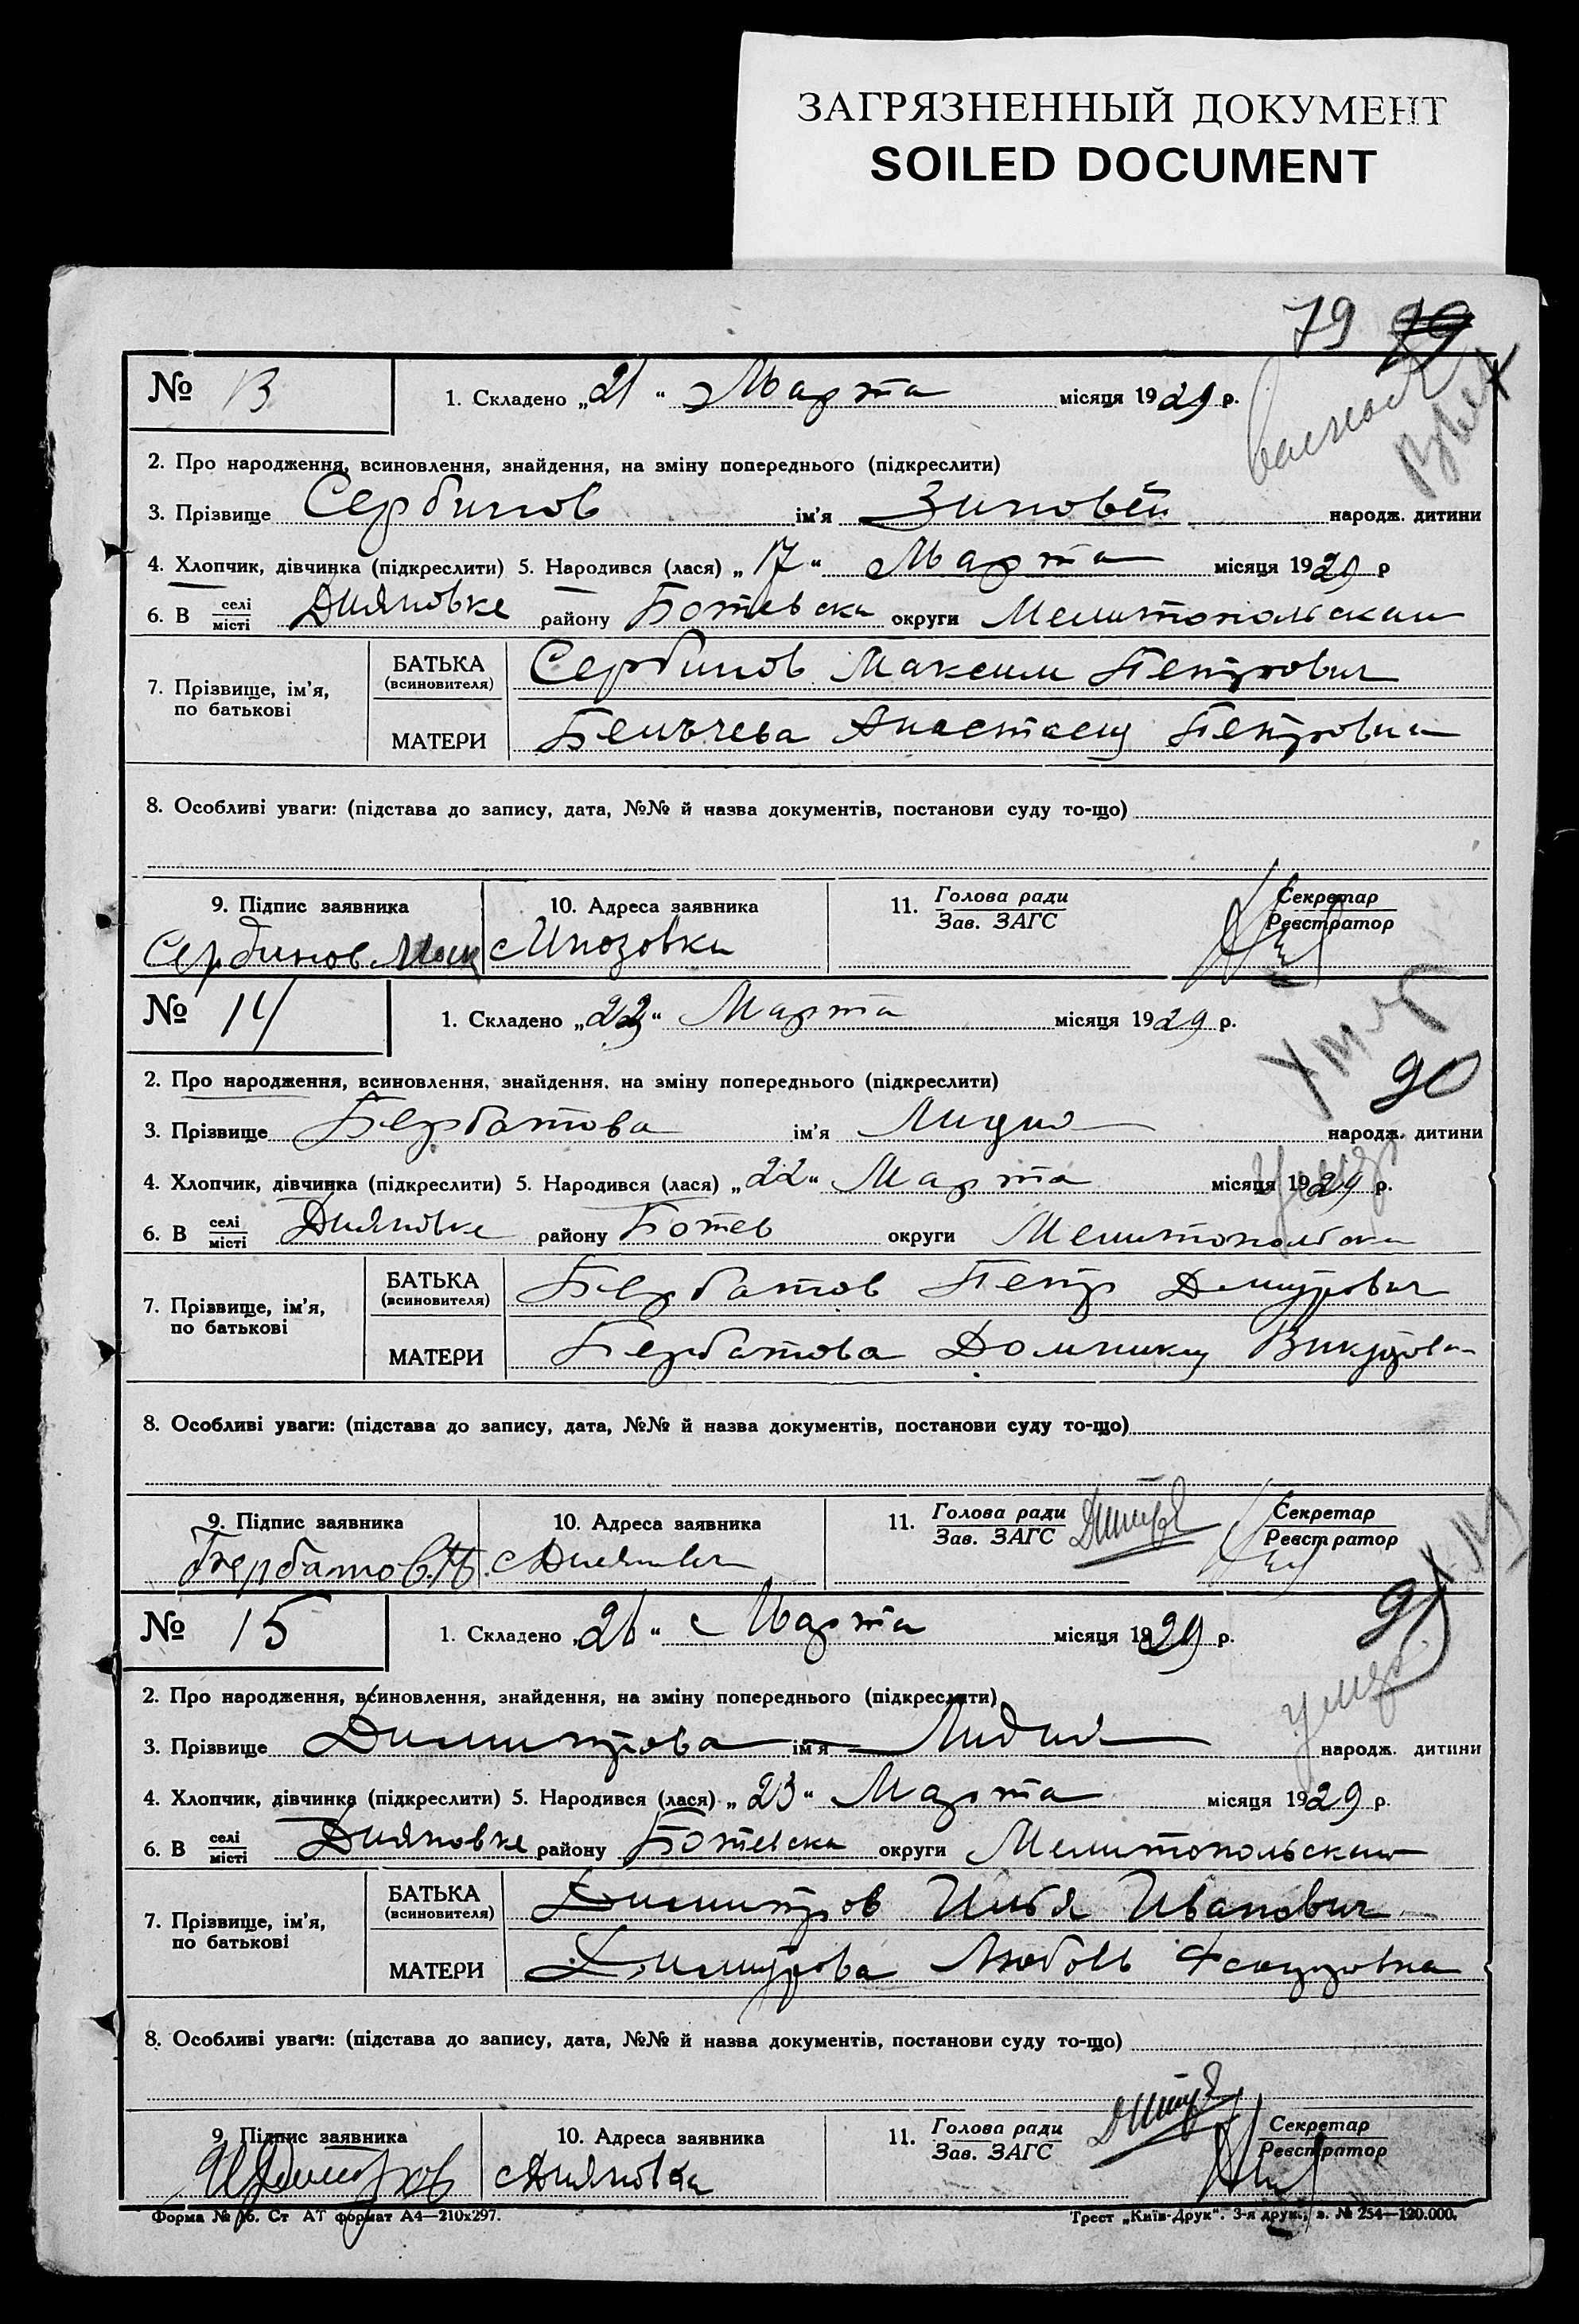 ЗАГРЯЗНЕННЫЙ ДОКУМЕНТ
SOILED DOCUMENT
79
№ 13
1. Складено „21“ Марта місяця 1929 р.
2. Про народження, всиновлення, знайдення, на зміну попереднього (підкреслити)
3. Прізвище Сербинов ім'я Зиновей народж. дитини
4. Хлопчик, дівчинка (підкреслити) 5. Народився (лася) „17“ Марта місяця 1929 р
6. В селі місті Дияновке району Ботевска округи Мелитопольская
7. Прізвище, ім'я, по батькові
БАТЬКА (всиновителя) Сербинов Максим Петрович
МАТЕРИ Анастасия Петровна
8. Особливі уваги: (підстава до запису, дата, №№ й назва документів, постанови суду то-що)
9. Підпис заявника
10. Адреса заявника
11. Голова ради Зав. ЗАГС
Секретар Реєстратор
Сербинов Мак
№ 14
1. Складено „22“ Марта місяця 1929 р.
90
2. Про народження, всиновлення, знайдення, на зміну попереднього (підкреслити)
3. Прізвище Бербатова ім'я Лидия народж. дитини
4. Хлопчик, дівчинка (підкреслити) 5. Народився (лася) „22“ Марта місяця 1929 р.
6. В селі місті Дияновке району Ботев округи Мелитопольска
7. Прізвище, ім'я, по батькові
БАТЬКА (всиновителя) Бербатов Петр Дмитрович
МАТЕРИ Бербатова Домникия
8. Особливі уваги: (підстава до запису, дата, №№ й назва документів, постанови суду то-що)
9. Підпис заявника
10. Адреса заявника
11. Голова ради Зав. ЗАГС
Секретар Реєстратор
Бербатов с Дияновка
№ 15
1. Складено „26“ Марта місяця 1929 р.
91
2. Про народження, всиновлення, знайдення, на зміну попереднього (підкреслити)
3. Прізвище Димитрова ім'я Лидия народж. дитини
4. Хлопчик, дівчинка (підкреслити) 5. Народився (лася) „23“ Марта місяця 1929 р.
6. В селі місті Дияновке району Ботевска округи Мелитопольская
7. Прізвище, ім'я, по батькові
БАТЬКА (всиновителя) Димитров Илья Иванович
МАТЕРИ Димитрова Любовь
8. Особливі уваги: (підстава до запису, дата, №№ й назва документів, постанови суду то-що)
9. Підпис заявника
10. Адреса заявника
11. Голова ради Зав. ЗАГС
Секретар Реєстратор
с Дияновка
Форма № 16. Ст АТ формат А4—210x297.
Трест „Київ-Друк“. 3-я друк., з. № 254—120.000.